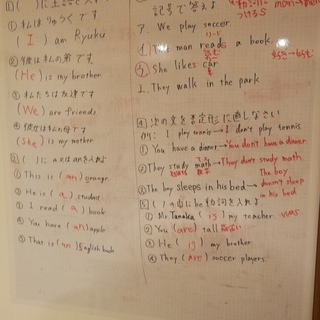 ① (I) am Ryuku
② 彼は私の弟です
(He) is my brother
③ 私たちは友達です
(We) are friends
④ 彼女は私の母です
(She) is my mother
① This is (an) orange.
② He is (a) student
③ I read (a) book
④ You have (an) apple
⑤ That is (an) English book
記号で答えよ
ア. We play soccer.
The man reads a book.
She likes car
They walk in the park
④ 次の文を否定形に直しなさい
例: I play tennis → I don't play tennis
① You have a dinner → You don't have a dinner.
② They study math → They don't study math.
③ The boy sleeps in his bed → The boy doesn't sleep in his bed
① Mr Tanaka (is) my teacher. was
② You (are) tall
③ He (is) my brother
④ They (are) soccer players.